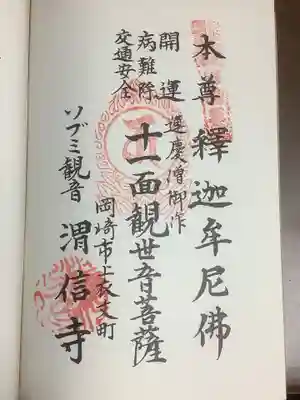 本尊釋迦牟尼佛
開運 運慶僧御作
病難除
交通安全
十一面観世音菩薩
岡崎市上衣文町
ソブミ観音 渭信寺